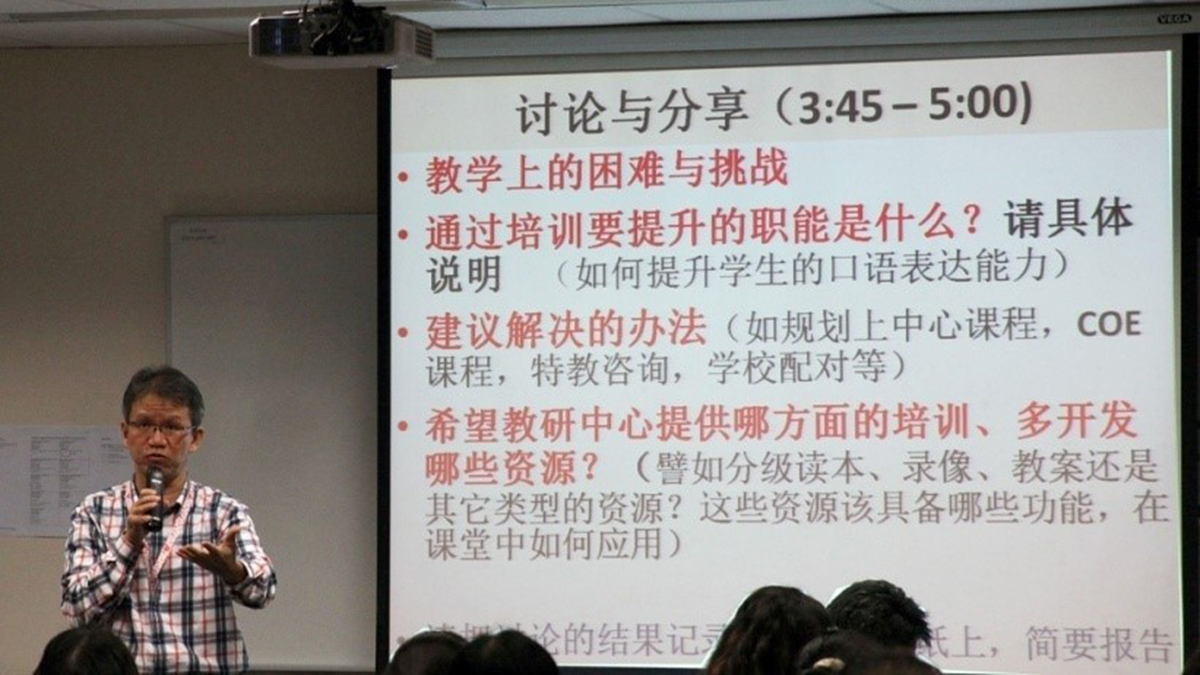 VEGA
讨论与分享（3:45 – 5:00)
• 教学上的困难与挑战
• 通过培训要提升的职能是什么？请具体
说明 （如何提升学生的口语表达能力）
• 建议解决的办法（如规划上中心课程，COE
课程，特教咨询，学校配对等）
• 希望教研中心提供哪方面的培训、多开发
哪些资源？（譬如分级读本、录像、教案还是
其它类型的资源？这些资源该具备哪些功能，在
课堂中如何应用）
• 请把讨论的结果记录 纸上，简要报告